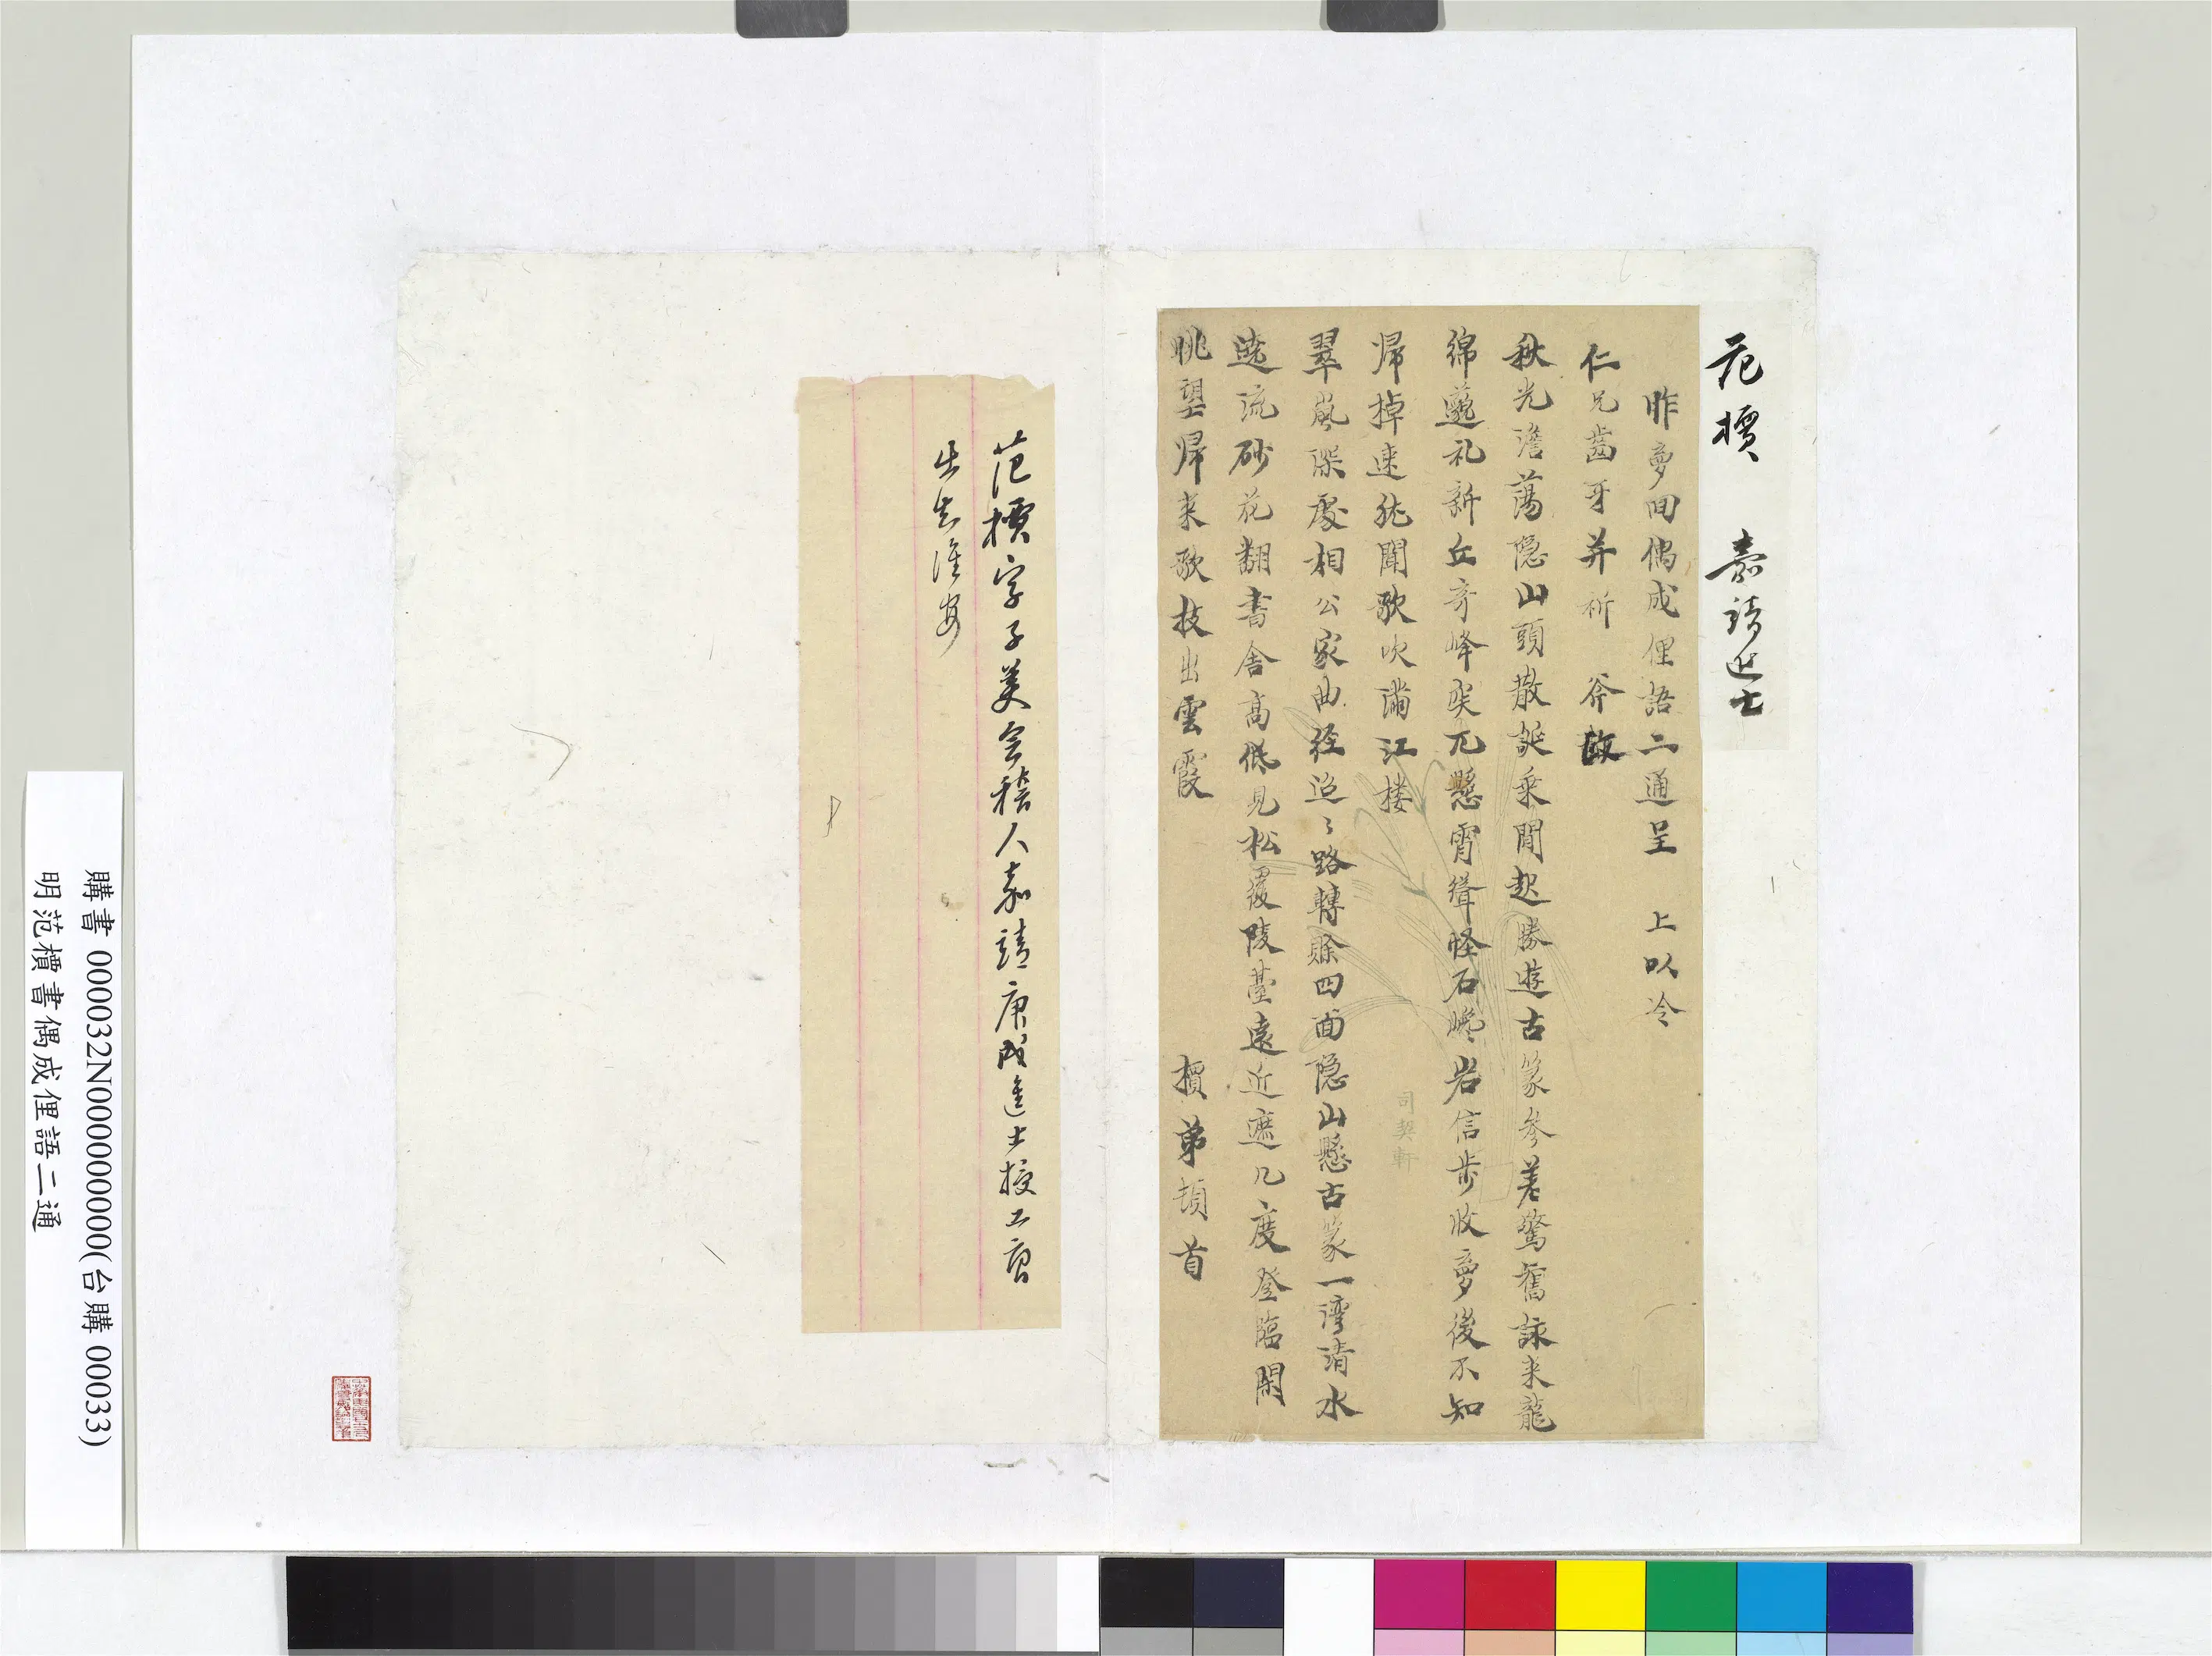 范檟　嘉靖進士
昨夢回偶成俚語二通呈　上以冷
仁兄齒牙并祈　斧政
秋光澹蕩隐山頭散誕乗閒起勝遊古篆参差驚舊詠来龍
綿邈礼新丘奇峰突兀懸霄聳怪石巉岩信步收夢後不知
帰掉速犹聞歌吹滿江楼
翠嵐深處相公家曲径迢〻路轉賒四面隐山懸古篆一湾清水
遶流砂花翻書舍高低見松覆陵臺遠近遮几度登臨閑
眺望帰来歌枝出雲霞
檟弟頓首
司契軒
范檟字子美会稽人嘉靖庚戌進士授工部
出知淮安
購書 000032N000000000(台購 00033)
明范檟書偶成俚語二通